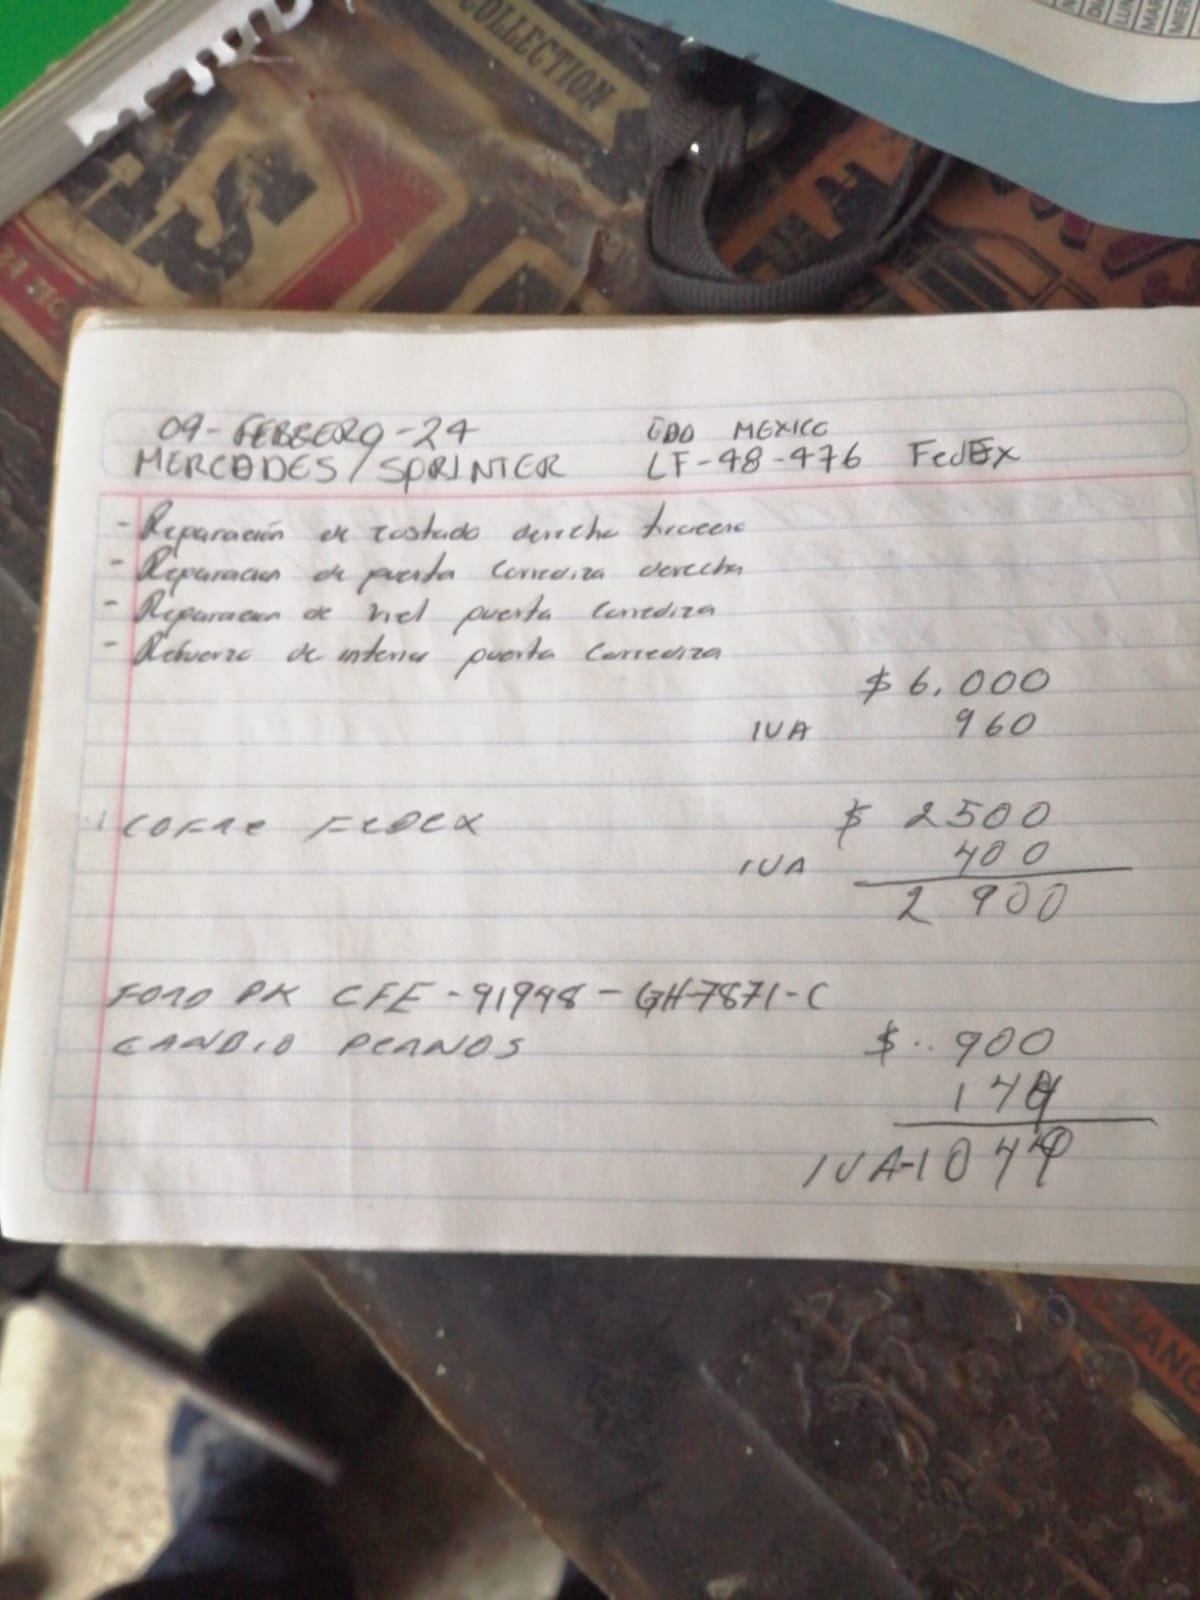 COLLECTION
TS
MAR
MIER
09-FEBRERO-24
EDO MEXICO
MERCEDES/SPRINTER
LF-48-476 FedEx
- Reparación de costado derecho trasero
- Reparacion de puerta corrediza derecha
- Reparacion de riel puerta corrediza
- Refuerzo de interior puerta corrediza
$ 6,000
IVA 960
1 COFRE FEDEX $ 2500
IVA 400
2 900
FORD PK CFE-91948-GH-7871-C
CAMBIO PERNOS $..900
144
IVA-1044